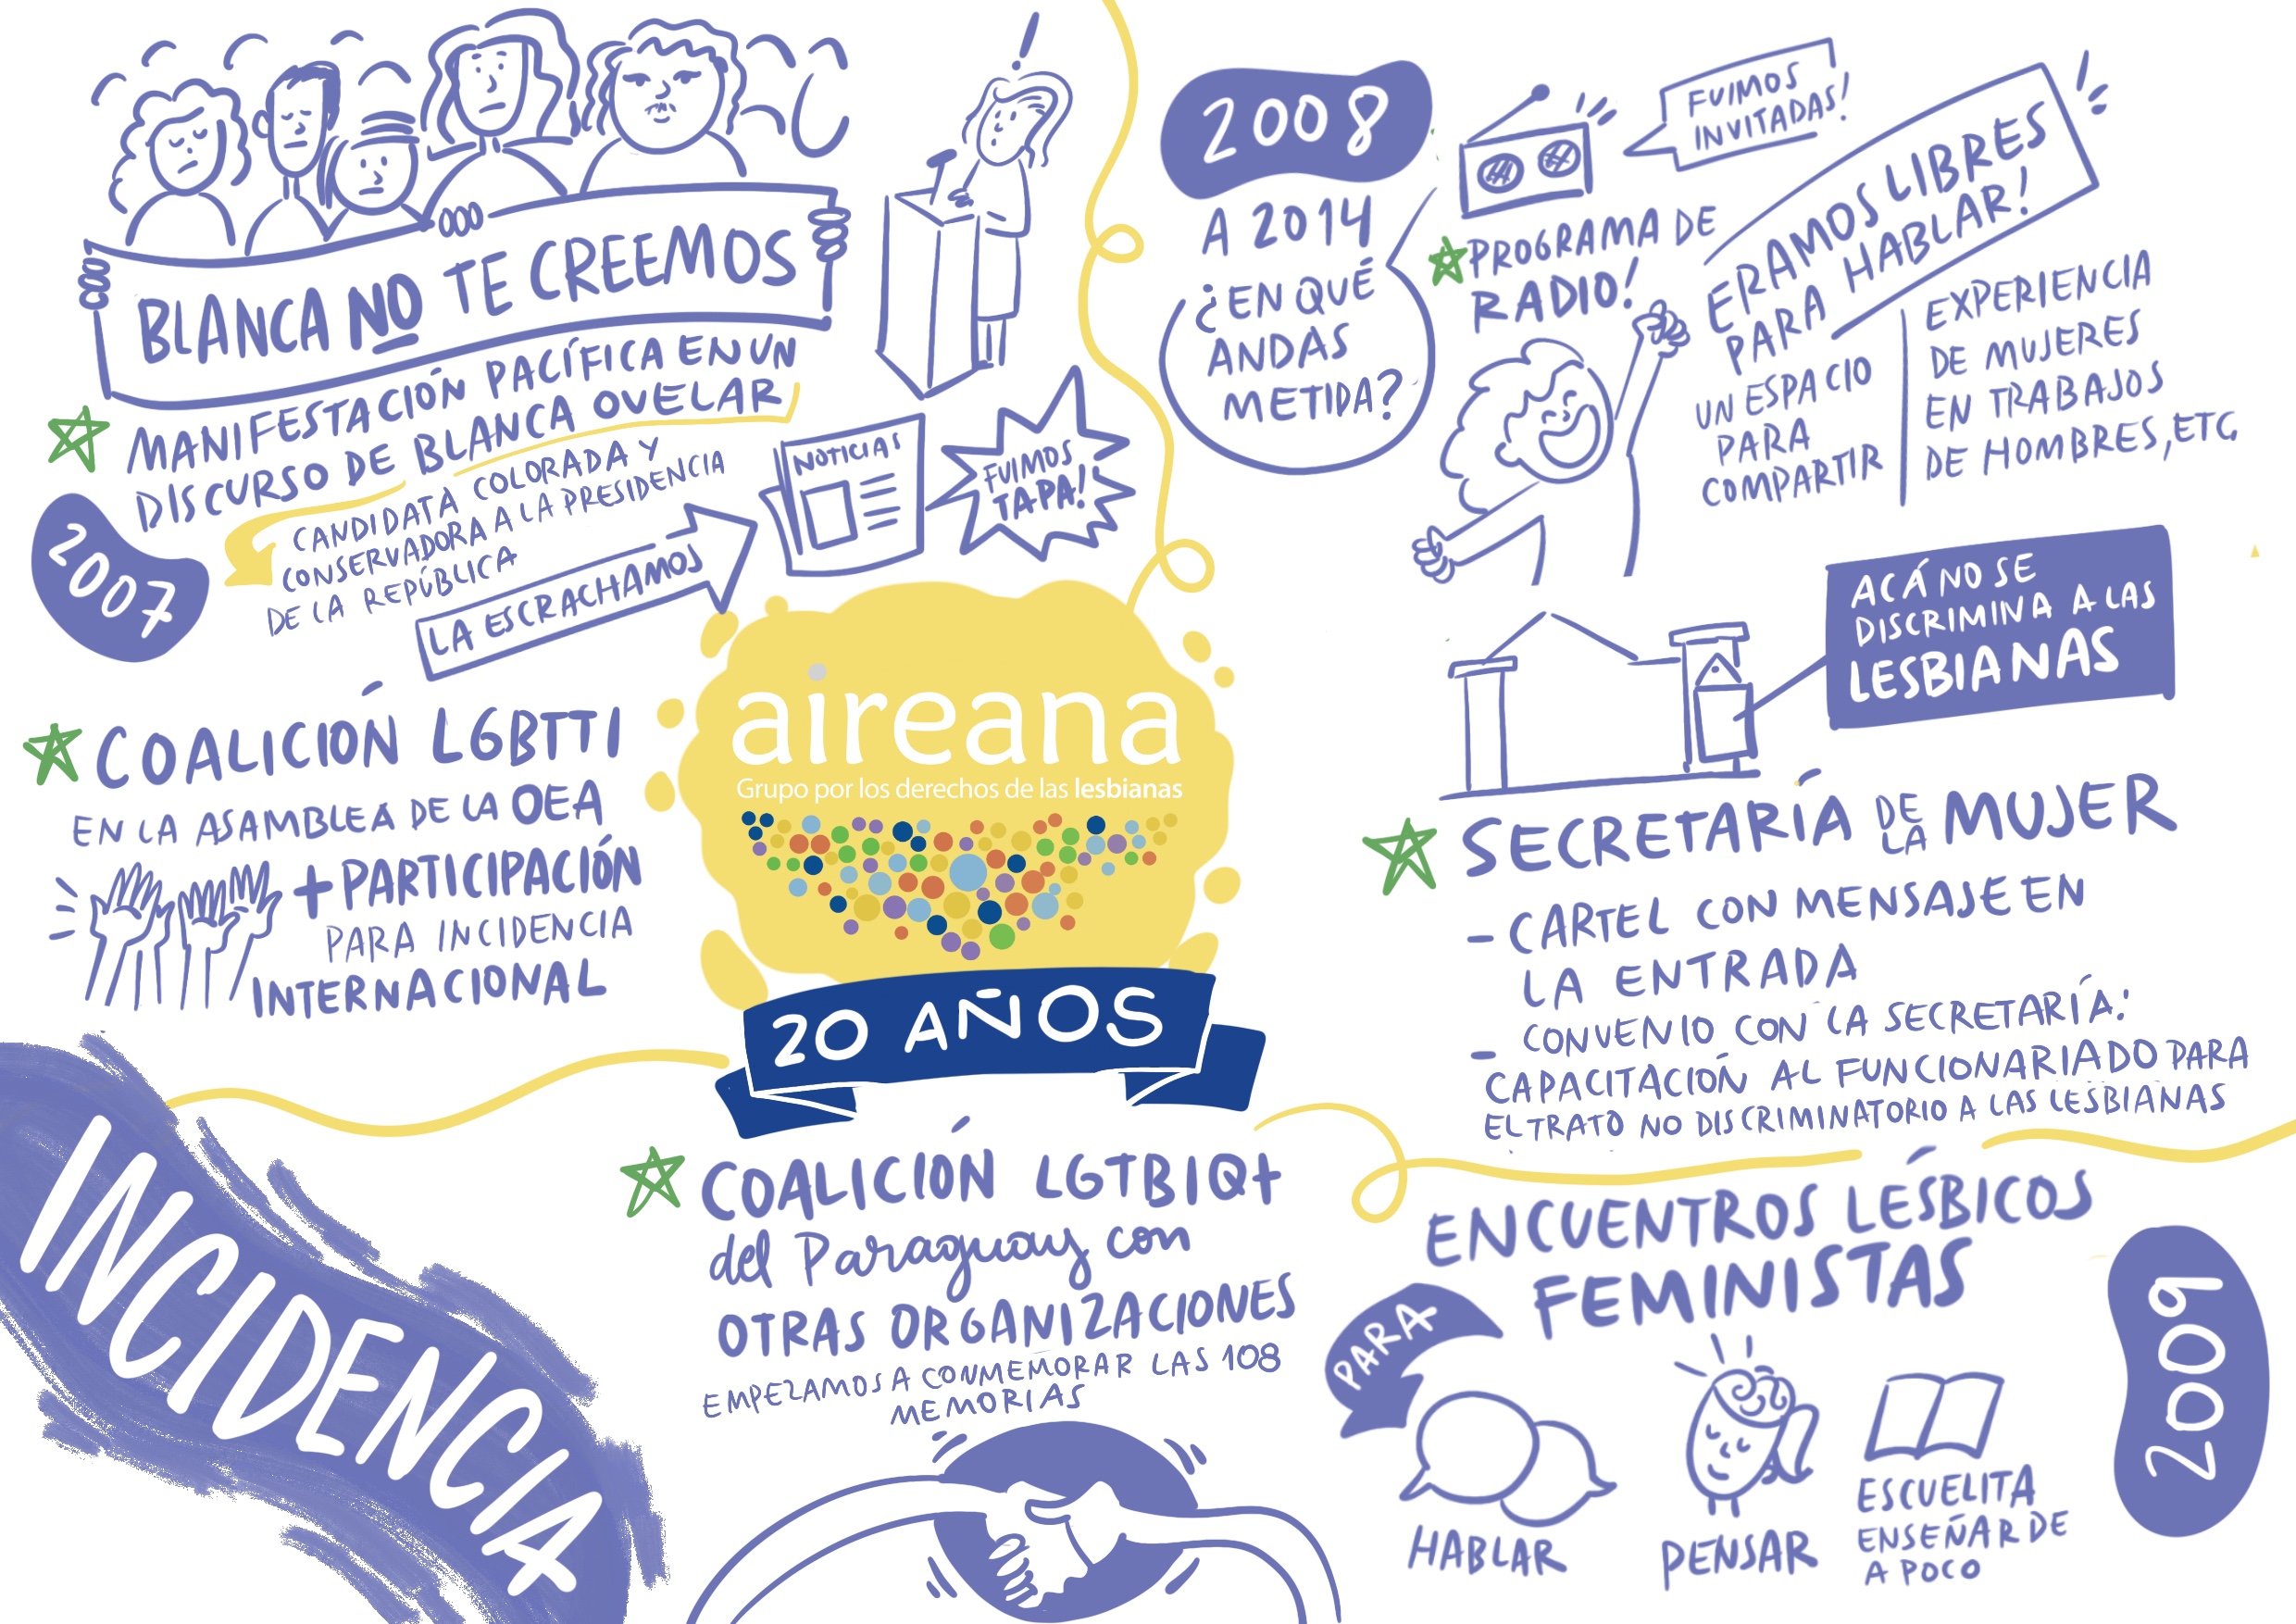 BLANCA NO TE CREEMOS
MANIFESTACIÓN PACÍFICA EN UN
DISCURSO DE BLANCA OVELAR
CANDIDATA COLORADA Y
CONSERVADORA A LA PRESIDENCIA
DE LA REPÚBLICA
2007
LA ESCRACHAMOS
NOTICIAS
FUIMOS
TAPA!
COALICIÓN LGBTTI
EN LA ASAMBLEA DE LA OEA
+ PARTICIPACIÓN
PARA INCIDENCIA
INTERNACIONAL
2008
A 2014
¿EN QUÉ
ANDAS
METIDA?
PROGRAMA DE
RADIO!
FUIMOS
INVITADAS!
ERAMOS LIBRES
PARA HABLAR!
UN ESPACIO
PARA
COMPARTIR
EXPERIENCIA
DE MUJERES
EN TRABAJOS
DE HOMBRES, ETC
ACÁ NO SE
DISCRIMINA A LAS
LESBIANAS
SECRETARÍA DE LA MUJER
- CARTEL CON MENSAJE EN
LA ENTRADA
- CONVENIO CON LA SECRETARÍA:
CAPACITACIÓN AL FUNCIONARIADO PARA
EL TRATO NO DISCRIMINATORIO A LAS LESBIANAS
aireana
Grupo por los derechos de las lesbianas
20 AÑOS
INCIDENCIA
COALICIÓN LGTBIQ+
del Paraguay con
OTRAS ORGANIZACIONES
EMPEZAMOS A CONMEMORAR LAS 108
MEMORIAS
ENCUENTROS LÉSBICOS
FEMINISTAS
PARA
HABLAR
PENSAR
ESCUELITA
ENSEÑAR DE
A POCO
2009